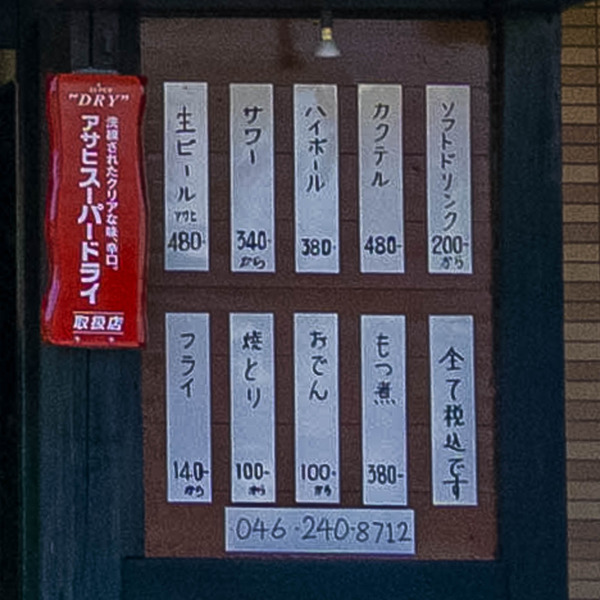 SUPER
"DRY"
洗練されたクリアな味、辛口。
アサヒスーパードライ
取扱店
生ビール
アサヒ
480-
サワー
340-
から
ハイボール
380-
カクテル
480-
ソフトドリンク
200-
から
フライ
140-
から
焼とり
100-
から
おでん
100-
から
もつ煮
380-
全て税込です
046-240-8712